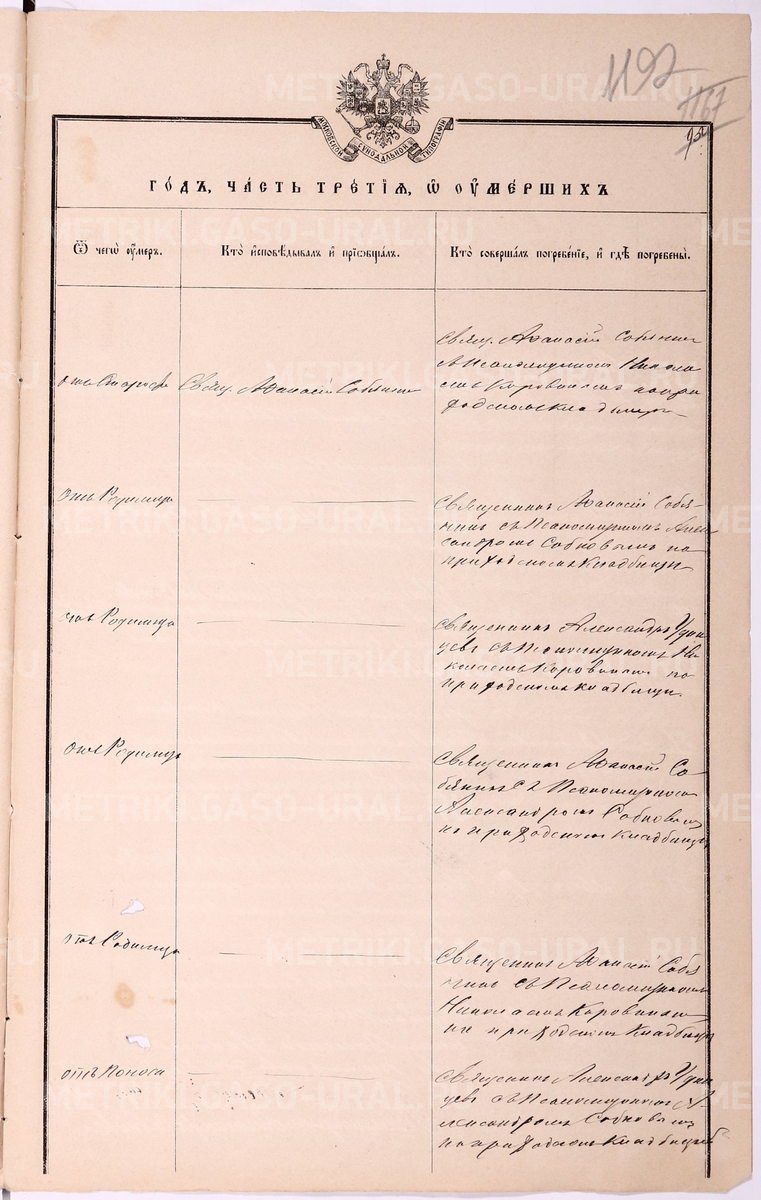 1192
1167
МОСКОВСКОЙ СѴНОДАЛЬНОЙ ТИПОГРАФІИ
ГО́ДЪ, ЧА́СТЬ ТРЕ́ТІѦ, Ѽ ОУ҆МЕ́РШИХЪ
Ѿ чегѡ̀ оу҆́меръ.
Кто̀ и҆сповѣ́дывалъ и҆ прїѡбща́лъ.
Кто̀ соверша́лъ погребе́нїе, и҆ гдѣ̀ погребены̀.
отъ Старости
Свящ. Аѳанасій Собянинъ
Свящ. Аѳанасій Собянинъ
съ Псаломщикомъ Никола
емъ Коровинымъ на при
ходскомъ кладбищѣ
Отъ Родимца
Священникъ Аѳанасій Собя-
нинъ съ Псаломщикомъ Алек
сандромъ Собковымъ на
приходскомъ кладбищѣ
отъ Родимца
Священникъ Александръ Удин
цевъ съ Псаломщикомъ Ни
колаемъ Коровинымъ на
приходскомъ кладбищѣ.
отъ Родимца
Священникъ Аѳанасій Со-
бянинъ съ Псаломщикомъ
Александромъ Собковымъ
на приходскомъ кладбищѣ
отъ Родимца
Священникъ Аѳанасій Собя
нинъ съ Псаломщикомъ
Николаемъ Коровинымъ
на приходскомъ кладбищѣ
отъ Поноса
Священникъ Александръ Удин
цевъ съ Псаломщикомъ А-
лександромъ Собковымъ
на приходскомъ кладбищѣ
METRIKI.GASO-URAL.RU